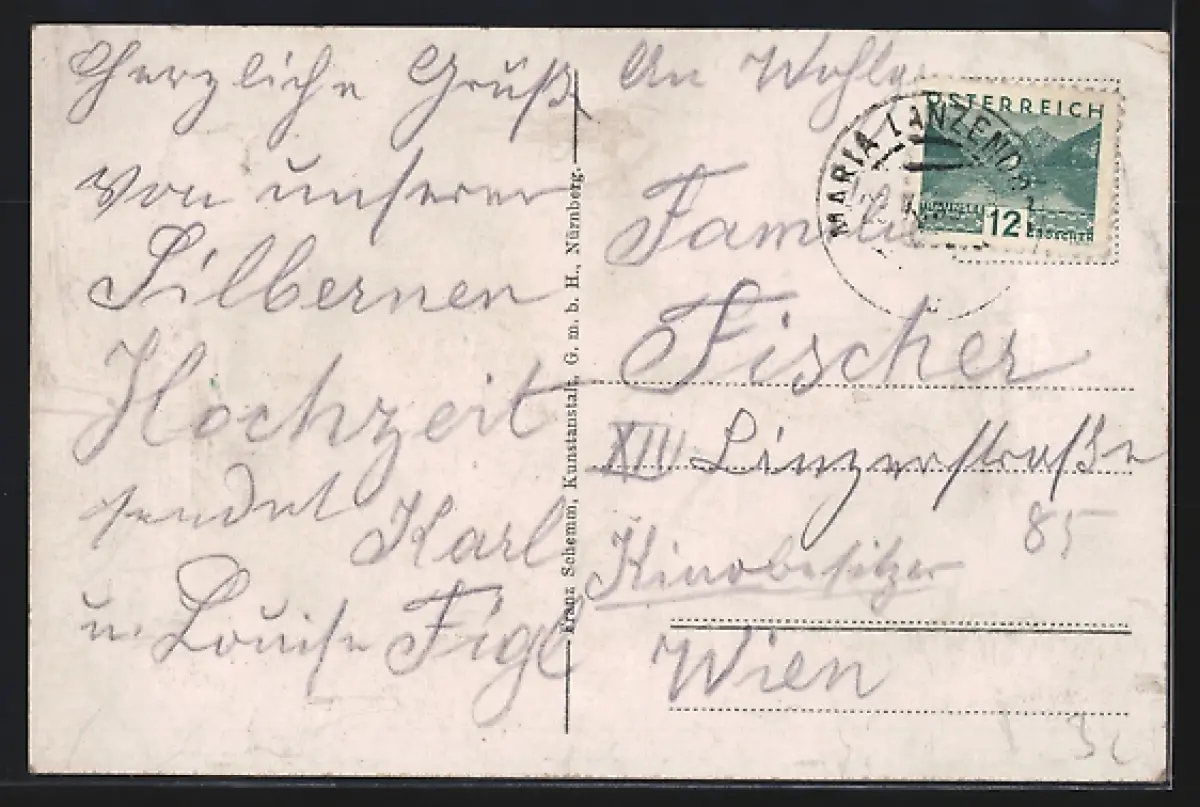 Herzliche Grüße
von unserer
Silbernen
Hochzeit
sendet Karl
u. Louise Figl
Franz Schemm, Kunstanstalt, G. m. b. H., Nürnberg.
An Wohlg
Familie
Fischer
XIII Linzerstraße
85
Kinobesitzer
Wien
ÖSTERREICH
12
MARIA-LANZENDO